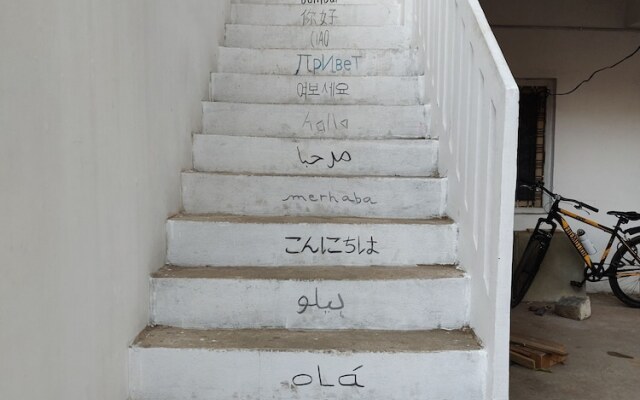 你好
CIAO
Привет
여보세요
hallo
مرحبا
merhaba
こんにちは
ہیلو
oLá